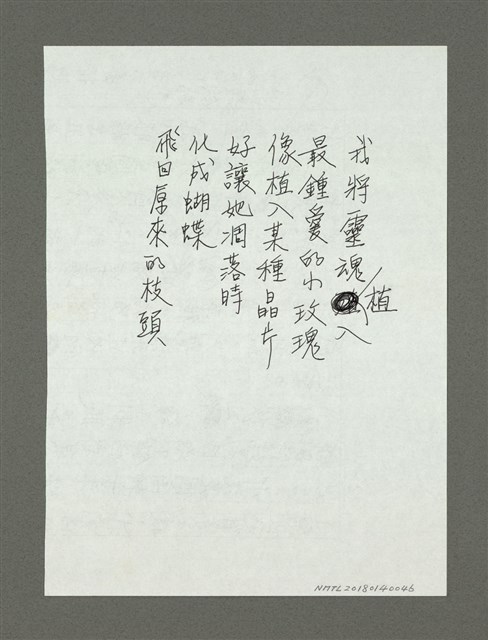 我將靈魂植入
最鍾愛的小玫瑰
像植入某種晶片
好讓她凋落時
化成蝴蝶
飛回原來的枝頭
NMTL20180140046